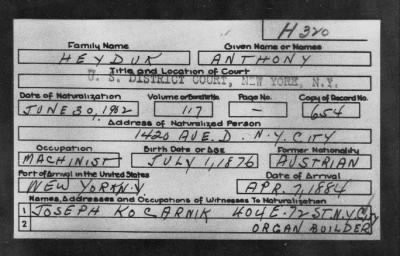 H 320
Family Name Given Name or Names
HEYDUK ANTHONY
Title and Location of Court
U. S. DISTRICT COURT, NEW YORK, N.Y.
Date of Naturalization Volume or Bundle No. Page No. Copy of Record No.
JUNE 30, 1902 117 - 654
Address of Naturalized Person
1420 AVE. D. N.Y. CITY
Occupation Birth Date or Age Former Nationality
MACHINIST JULY 1, 1876 AUSTRIAN
Port of Arrival in the United States Date of Arrival
NEW YORK N.Y. APR. 7, 1884
Names, Addresses and Occupations of Witnesses To Naturalization
1 JOSEPH KOCARNIK 404 E. 72 ST. N.Y.C.
2 ORGAN BUILDER